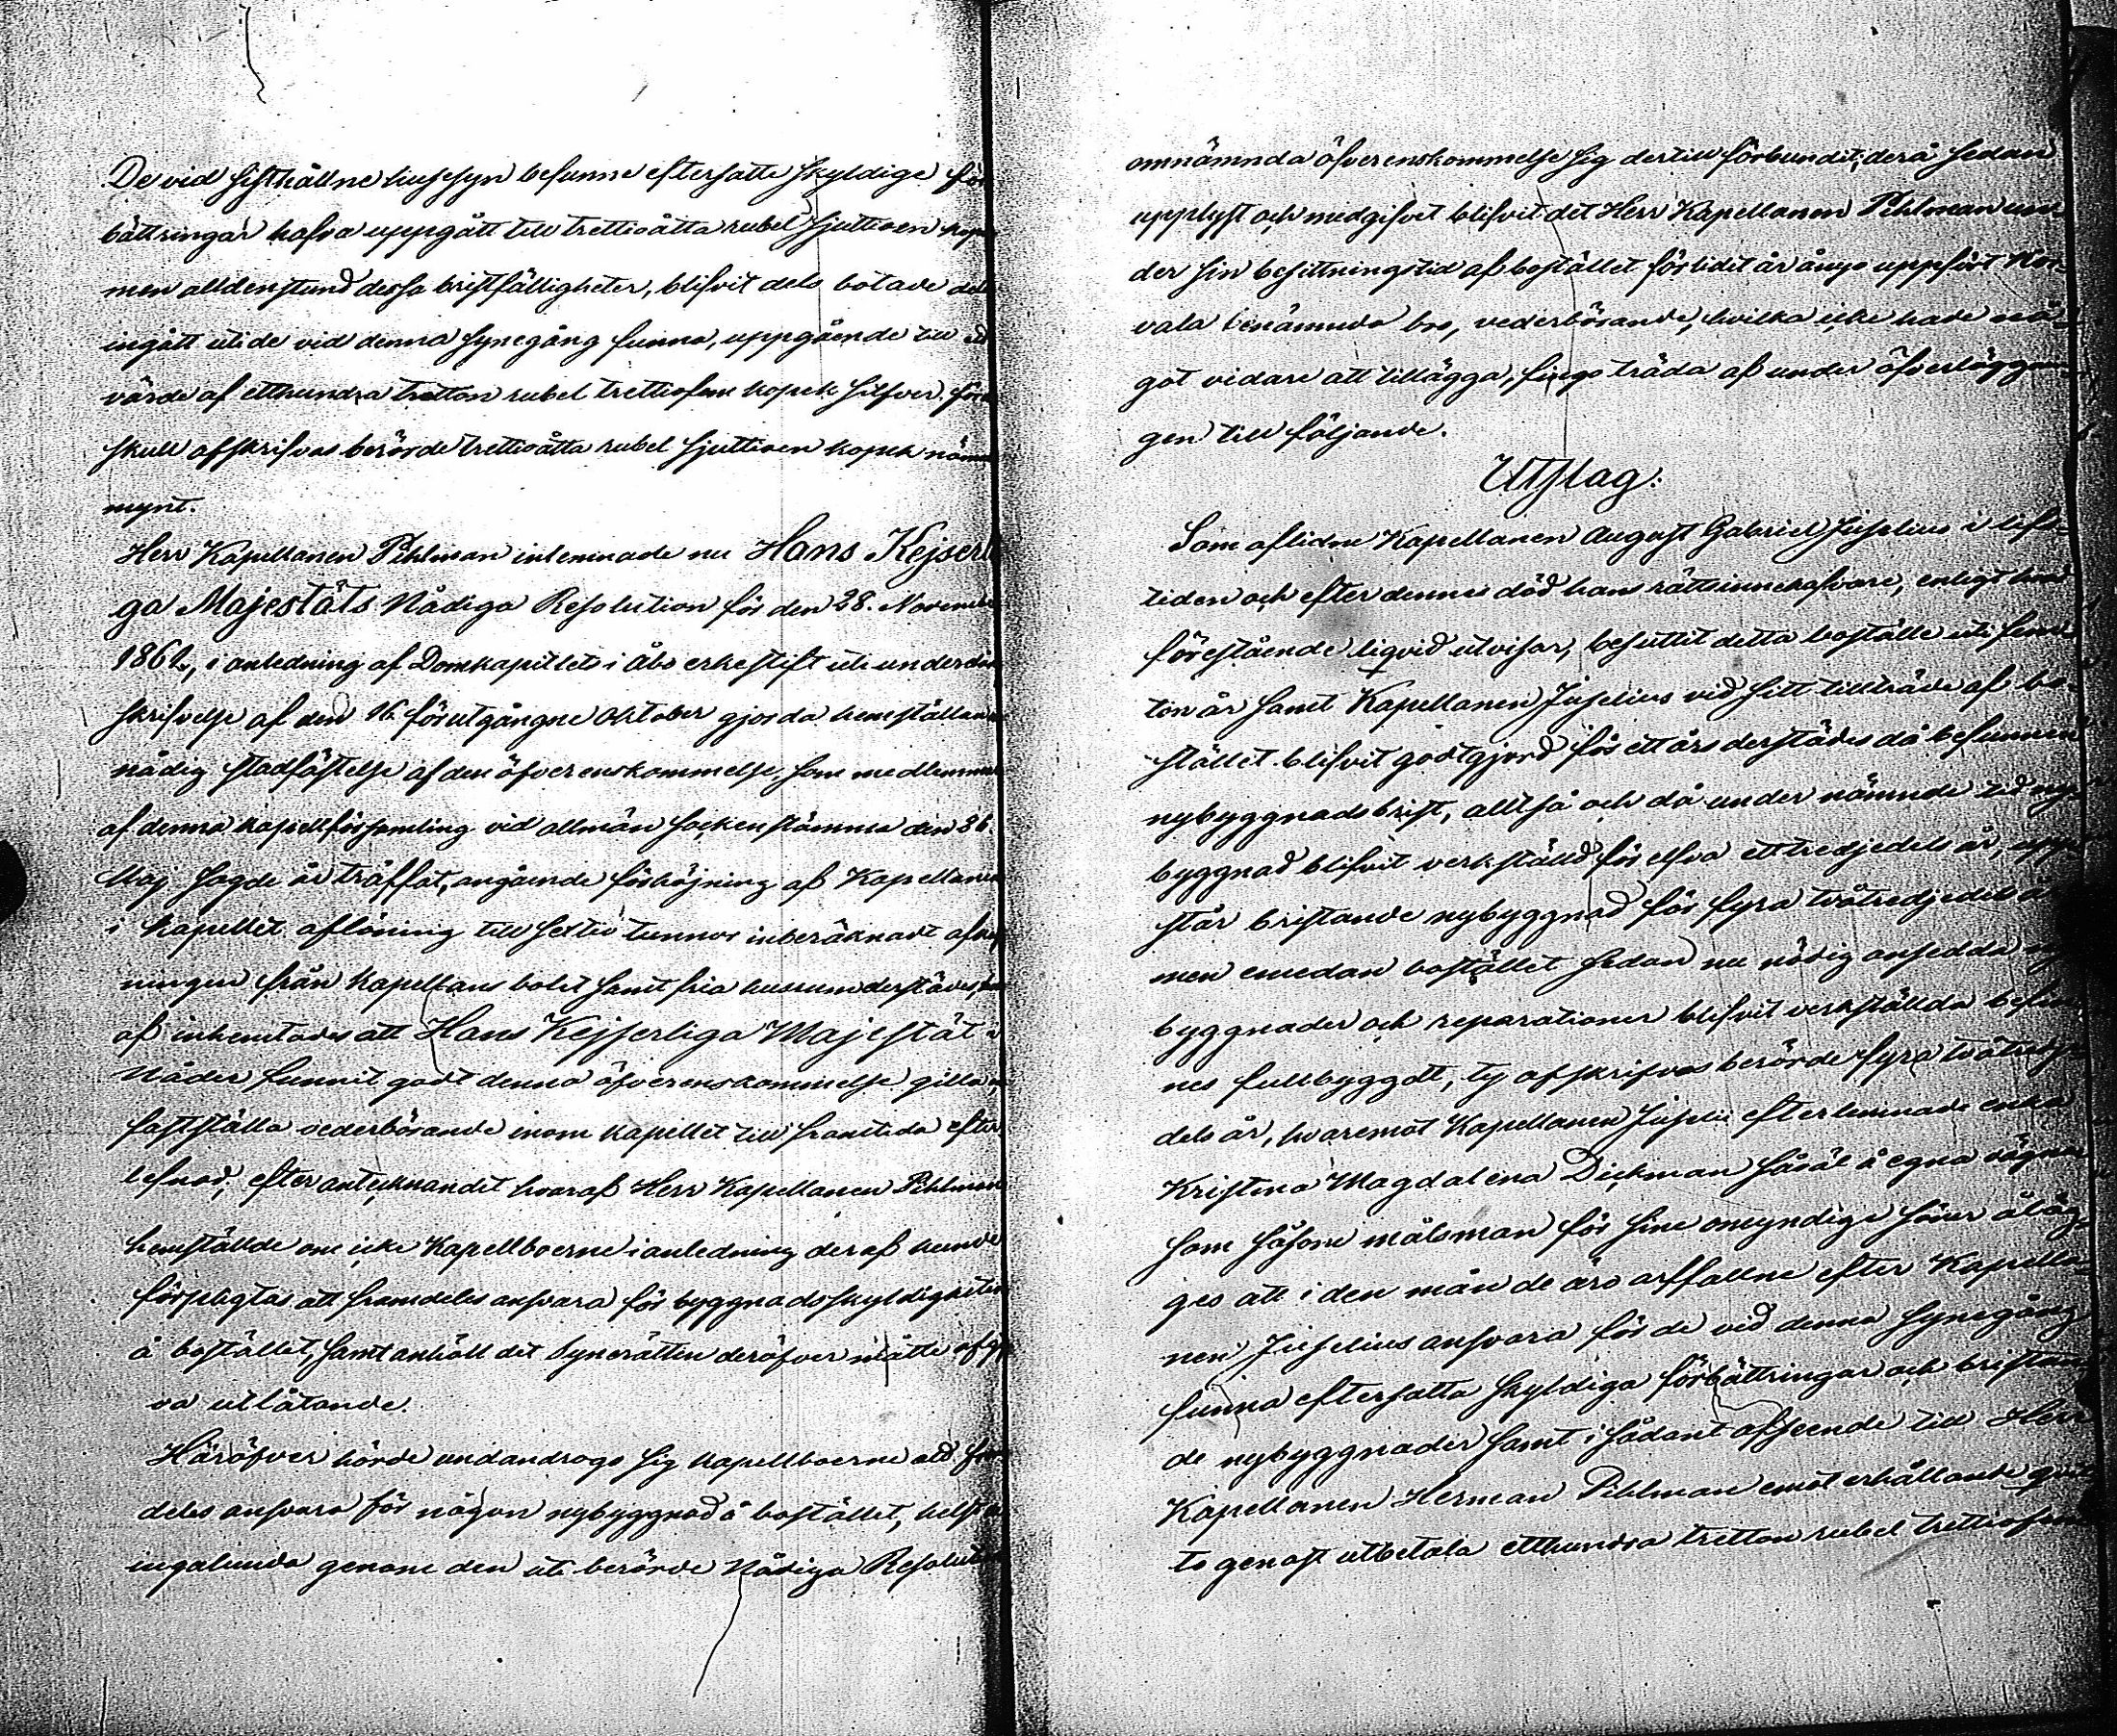 De vid sisthållne husesyn befunne eftersatte skyldige för
bättringar hafva uppgått till trettioåtta rubel sjuttioen kope
men alldenstund dessa bristfälligheter, blifvit dels botade dels
ingått uti de vid denna synegång funna, uppgående till ett
värde af etthundra tretton rubel trettiofem kopek silfver, för
skull afskrifvas berörde trettioåtta rubel sjuttioen kopek nämn
mynt.
Herr Kapellanen Pihlman inlemnade nu Hans Kejserli
ga Majestäts Nådiga Resolution för den 28. November
1861, i anledning af Domkapitlets i Åbo erkestift uti underdån
skrifvelse af den 16 förutgångne Oktober gjorda hemställan
nådig stadfästelse af den öfverenskommelse, som medlemmar
af denna kapellförsamling vid allmän sockenstämma den 26
Maj sagde år träffat, angående förhöjning af Kapellanen
i kapellet aflöning till sextio tunnor inberäknadt afka
ningen från Kapellans bolet samt fria husrum derstädes,
af inhemtades att Hans Kejserliga Majestät i
Nåder funnit godt denna öfverenskommelse gilla,
fastställa vederbörande inom kapellet till framtida efter
lefnad, efter antecknandet hvaraf Herr Kapellanen Pihlman
hemställde om icke Kapellboerne i anledning deraf kunde
förpligtas att framdeles ansvara för byggnadsskyldigheten
å bostället, samt anhöll det Synerätten deröfver måtte afgif
va utlåtande.
Häröfver hörde undandrogo sig kapellboerne att fram
deles ansvara för någon nybyggnad å bostället, helst
ingalunda genom den uti berörde Nådiga Resolution
omnämnda öfverenskommelse sig dertill förbundit; derå sedan
upplyst och medgifvet blifvit det Herr Kapellanen Pihlman un
der sin besittningstid af bostället förlidit år ånyo uppfört
vala benämnda bro, vederbörande, hvilka icke hade nå
got vidare att tillägga, fingo träda af under öfverläggnin
gen till följande.
Utslag:
Som aflidne Kapellanen August Gabriel Juselius i lifs
tiden och efter dennes död hans rättsinnehafvare, enligt hvad
förestående liqvid utvisar, besuttit detta boställe uti femton
ton år samt Kapellanen Juselius vid sitt tillträde af bo
stället blifvit godtgjord för ett års derstädes då befunnen
nybyggnadsbrist, alltså och då under nämnde tid ny
byggnad blifvit verkställd för elfva ett tredjedels år, upp
står bristande nybyggnad för fyra tvåtredjedels år
men emedan bostället sedan nu nödig ansedda ny
byggnader och reparationer blifvit verkställda befin
nes fullbyggdt, ty afskrifvas berörde fyra tvåtredje
dels år, hvaremot Kapellanen Juselii efterlemnade enka
Kristina Magdalena Dickman såväl å egna vägnar
som såsom målsman för sine omyndige söner åläg
ges att i den mån de äro arffallne efter Kapella
nen Juselius ansvara för de vid denna synegång
funna eftersatta skyldiga förbättringar och bristan
de nybyggnader samt i sådant afseende till Herr
Kapellanen Herman Pihlman emot erhållande qvit
to genast utbetala etthundra tretton rubel trettiofem